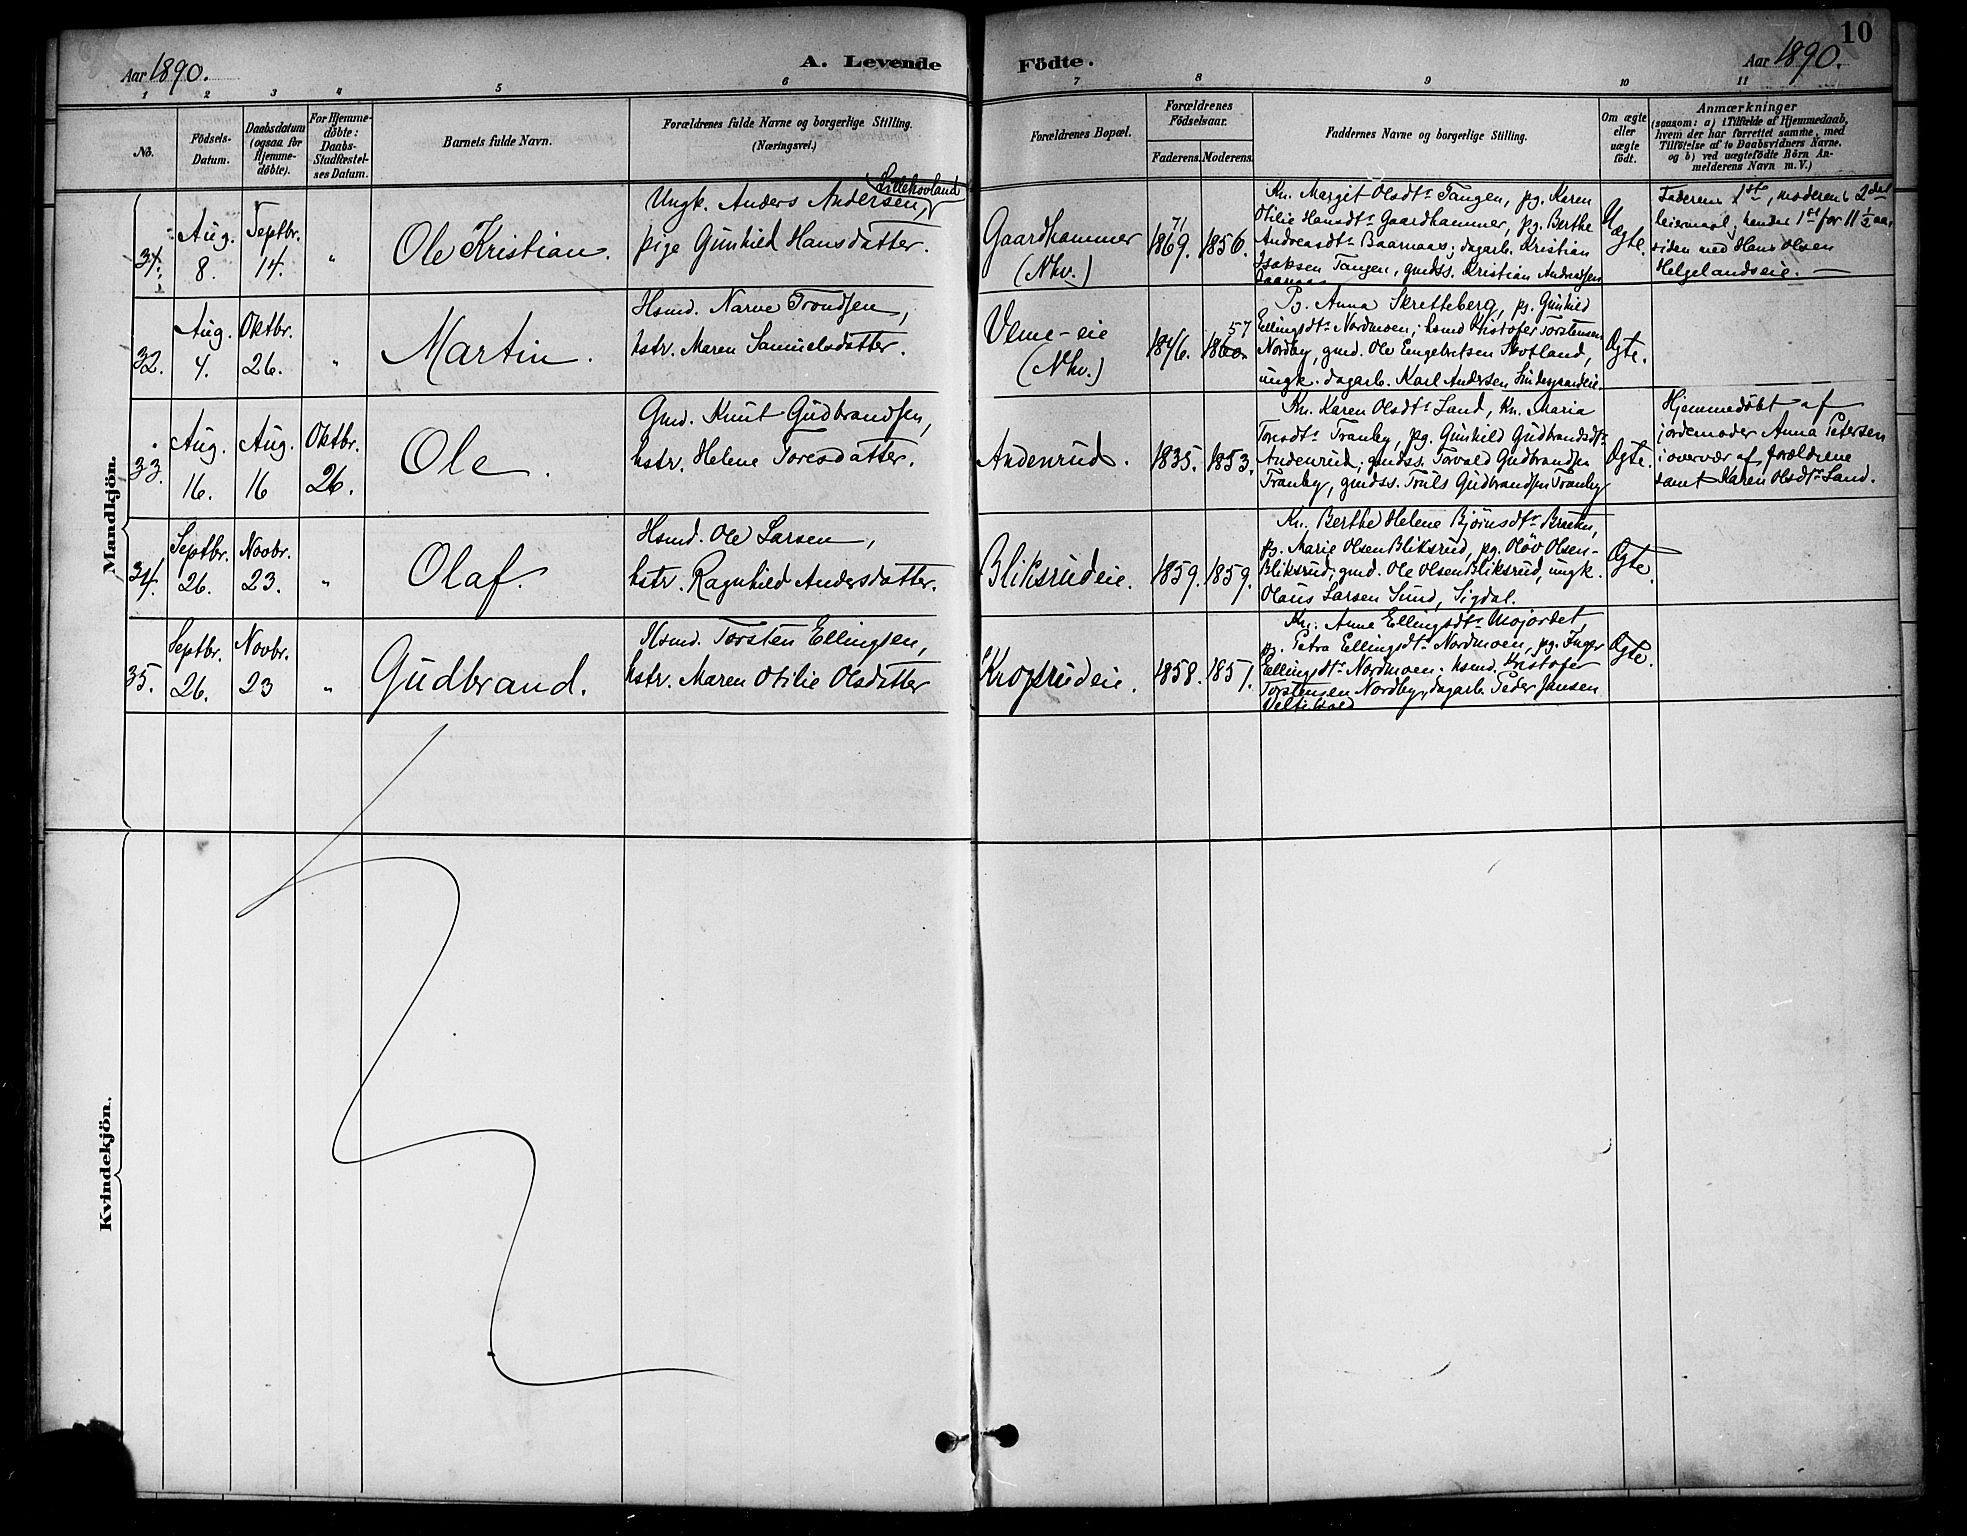 Aar 1890.
A. Levende
Födte.
Aar 1890.
10
1 2 3 4 5 6 7 8 9 10 11
No.
Födsels-
Datum.
Daabsdatum
(ogsaa for
Hjemme-
døbte).
For Hjemme-
døbte:
Daabs-
Stadfæstel-
ses Datum.
Barnets fulde Navn.
Forældrenes fulde Navne og borgerlige Stilling.
(Næringsvei.)
Forældrenes Bopæl.
Forældrenes
Födselsaar.
Faderens. Moderens.
Faddernes Navne og borgerlige Stilling.
Om ægte
eller
uægte
født.
Anmærkninger
(saasom: a) i Tilfælde af Hjemmedaab,
hvem der har forrettet samme, med
Tilföielse af to Daabsvidners Navne.
og b) ved uægtefødte Börn An-
melderens Navn m. V.)
Mandkjön.
31.
Aug.
8.
Septbr.
14.
"
Ole Kristian.
Lillehovland
Ungk. Anders Andersen,
pige Gunhild Hansdatter.
Gaardhammer
(Nkv.)
71
1869. 1856.
Kn. Margit Olsdtr Tangen, pg. Karen
Otilie Hansdtr Gaardhammer, pg. Berthe
Andreasdtr Baarnaas; dagarb. Kristian
Isaksen Tangen, gmdss. Kristian Andersen
Uægte.
Faderens 1ste, moderens 2det
leiermaal, hendes 1ste for 11 1/2 aar
siden med Hans Olsen
Helgelandseie.
32.
Aug.
4.
Oktbr.
26.
"
Martin.
Hsmd. Narve Trondsen,
hstr. Maren Samuelsdatter.
Ulme-eie
(Nkv.)
57
1846. 1860.
Pg. Anna Skretteberg, pg. Gunhild
Ellingsdtr Nordmoen; hsmd Kristofer Torstensen
Nordby, gmd. Ole Engebretsen Skotland,
ungk. dagarb. Karl Andersen
Ægte.
33.
Aug.
16.
Aug.
16
Oktbr.
26.
Ole.
Gmd. Knut Gudbrandsen,
hstr. Helene Toresdatter.
Andenrud.
1835. 1853.
Kn. Karen Olsdtr Sand, Kn. Maria
Toresdtr Tranby, pg. Gunhild Gudbrandsdtr
Andenrud; gmdss. Torvald Gudbrandsen
Tranby, gmdss. Truls Gudbrandsen Tranby
Ægte.
Hjemmedøbt af
jordemoder Anna Petersen
i overvær af forældrene
samt Karen Olsdtr Sand.
34.
Septbr.
26.
Novbr.
23.
"
Olaf.
Hsmd. Ole Larsen,
hstr. Ragnhild Andersdatter.
Bliksrudeie.
1859. 1859.
Kn. Berthe Helene Bjørnsdtr Braaten,
pg. Marie Olsen Bliksrud, pg. Oløv Olsen-
Bliksrud; gmd. Ole Olsen Bliksrud, ungk.
Olaus Larsen Sund, Sigdal.
Ægte.
35.
Septbr.
26.
Novbr.
23
"
Gudbrand.
Hsmd. Torsten Ellingsen,
hstr. Maren Otilie Olsdatter
Kropsrudeie.
1858. 1857.
Kn. Anne Ellingsdtr Mojordet,
pg. Petra Ellingsdtr Nordmoen, pg. Inger
Ellingsdtr Nordmoen; hsmd. Kristofer
Torstensen Nordby, dagarb. Peder Jansen
Ægte.
Kvindekjön.